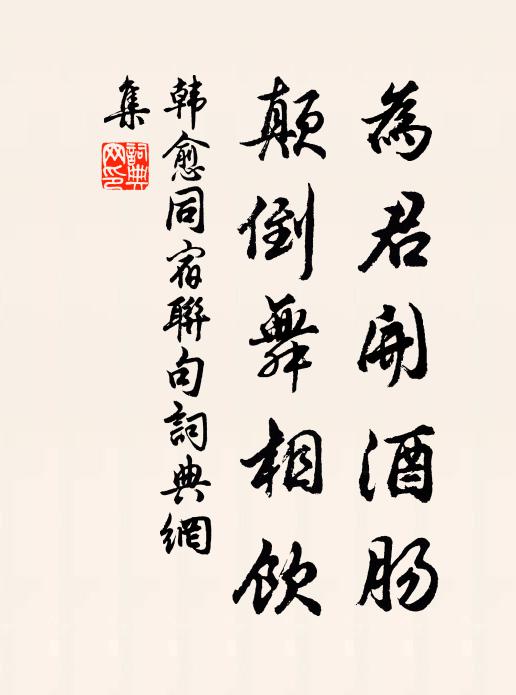 為君開酒腸
顛倒舞相飲
韓愈同宿聯句詞典網
集
詞典
网印